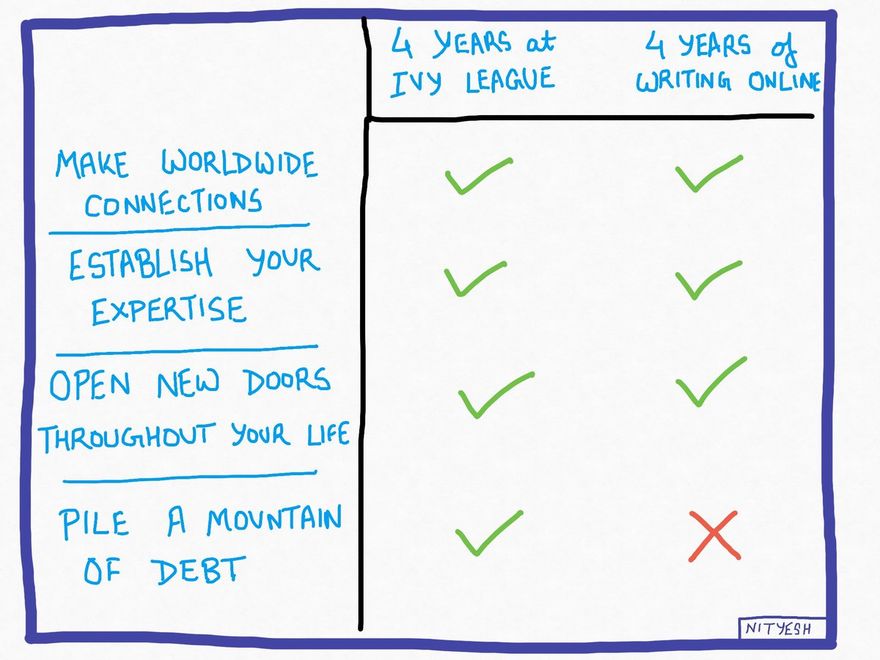 4 YEARS at
IVY LEAGUE
4 YEARS of
WRITING ONLINE
MAKE WORLDWIDE
CONNECTIONS
ESTABLISH YOUR
EXPERTISE
OPEN NEW DOORS
THROUGHOUT YOUR LIFE
PILE A MOUNTAIN
OF DEBT
NITYESH